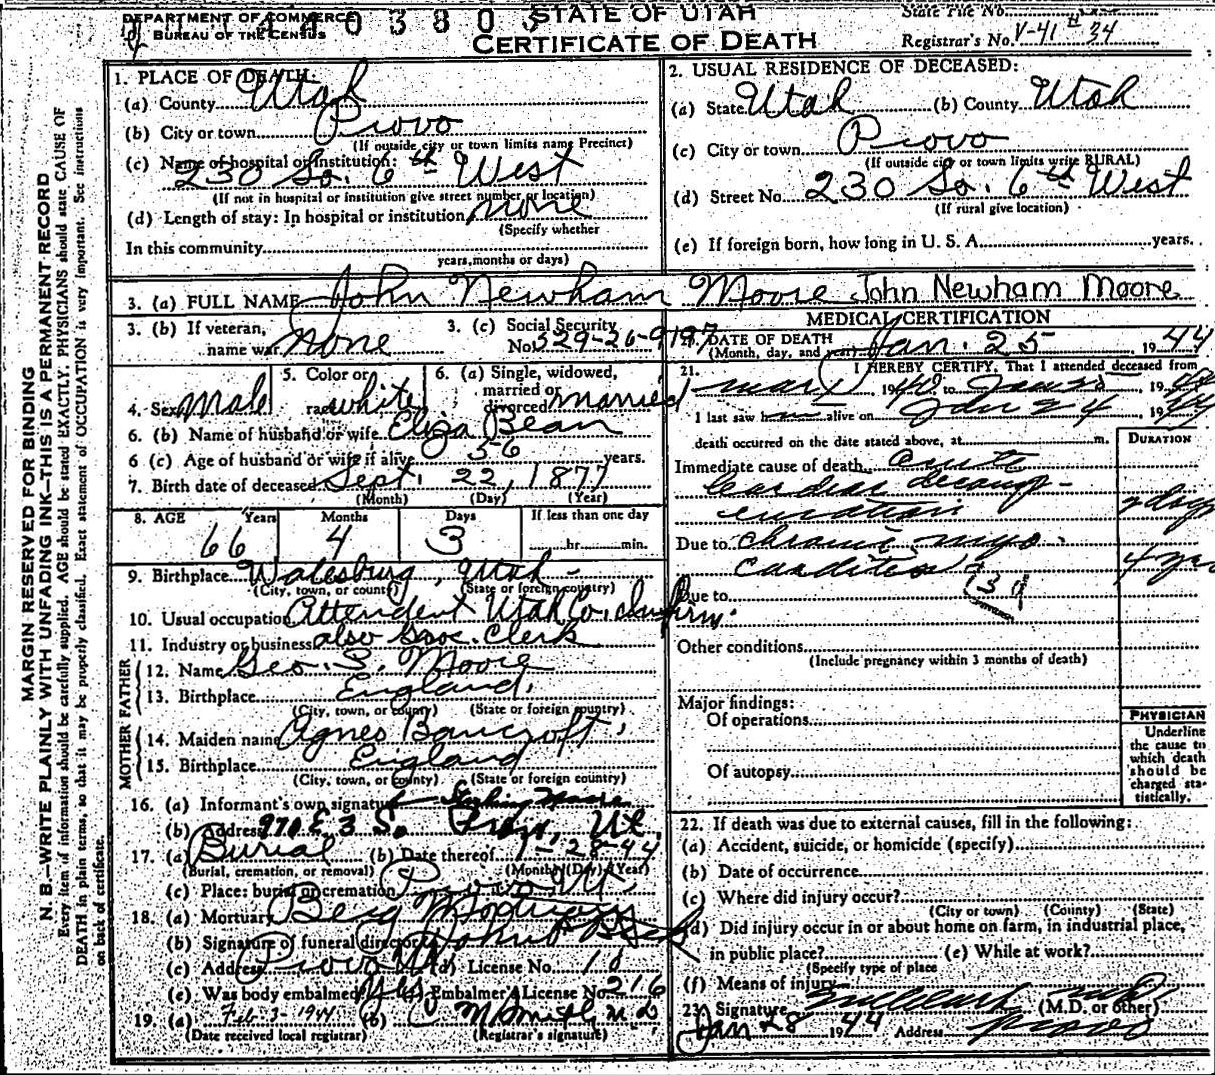 DEPARTMENT OF COMMERCE
BUREAU OF THE CENSUS
STATE OF UTAH
CERTIFICATE OF DEATH
State File No.
Registrar's No. V-41 34
MARGIN RESERVED FOR BINDING
N. B.—WRITE PLAINLY WITH UNFADING INK—THIS IS A PERMANENT RECORD
Every item of information should be carefully supplied. AGE should be stated EXACTLY. PHYSICIANS should state CAUSE OF
DEATH in plain terms, so that it may be properly classified. Exact statement of OCCUPATION is very important. See instructions
on back of certificate.
1. PLACE OF DEATH:
(a) County Utah
(b) City or town Provo
(If outside city or town limits name Precinct)
(c) Name of hospital or institution:
230 So. 6th West
(If not in hospital or institution give street number or location)
(d) Length of stay: In hospital or institution None
(Specify whether
In this community
years, months or days)
2. USUAL RESIDENCE OF DECEASED:
(a) State Utah (b) County Utah
(c) City or town Provo
(If outside city or town limits write RURAL)
(d) Street No. 230 So. 6th West
(If rural give location)
(e) If foreign born, how long in U. S. A. years.
3. (a) FULL NAME John Newham Moore John Newham Moore
3. (b) If veteran, name war None
3. (c) Social Security No. 529-26-9197
4. Sex Male
5. Color or race white
6. (a) Single, widowed, married or divorced married
6. (b) Name of husband or wife Eliza Bean
6 (c) Age of husband or wife if alive 56 years.
7. Birth date of deceased Sept. 22, 1877
(Month) (Day) (Year)
8. AGE Years Months Days If less than one day
66 4 3 hr. min.
9. Birthplace Walesburg, Utah
(City, town, or county) (State or foreign country)
10. Usual occupation Attendent Utah Co. Infirm.
11. Industry or business also Groc. Clerk
FATHER
12. Name Geo. S. Moore
13. Birthplace England.
(City, town, or county) (State or foreign country)
MOTHER
14. Maiden name Agnes Bancroft
15. Birthplace England
(City, town, or county) (State or foreign country)
16. (a) Informant's own signature Moore
(b) Address 970 E. 3 So. Provo, Ut.
17. (a) Burial (b) Date thereof 1-28-44
(Burial, cremation, or removal) (Month) (Day) (Year)
(c) Place: burial or cremation Provo, Ut.
18. (a) Mortuary Berg Mortuary
(b) Signature of funeral director
(c) Address Provo Ut (d) License No. 10
(e) Was body embalmed Yes (f) Embalmer's License No. 216
19. (a) Feb 3-1944 (b) C M Smith, M D
(Date received local registrar) (Registrar's signature)
MEDICAL CERTIFICATION
20. DATE OF DEATH
(Month, day, and year) Jan. 25, 1944
21. I HEREBY CERTIFY, That I attended deceased from
1940 to 19
I last saw him alive on Jan 24, 1944
death occurred on the date stated above, at m.
DURATION
Immediate cause of death Acute
Cardiac decomp-
ensation 2 days
Due to Chronic myo-
carditis 4 yrs
Due to
Other conditions
(Include pregnancy within 3 months of death)
Major findings:
Of operations
Of autopsy
PHYSICIAN
Underline
the cause to
which death
should be
charged sta-
tistically.
22. If death was due to external causes, fill in the following:
(a) Accident, suicide, or homicide (specify)
(b) Date of occurrence
(c) Where did injury occur?
(City or town) (County) (State)
(d) Did injury occur in or about home on farm, in industrial place,
in public place? (e) While at work?
(Specify type of place
(f) Means of injury
23. Signature (M.D. or other)
Jan 28 1944 Address Provo